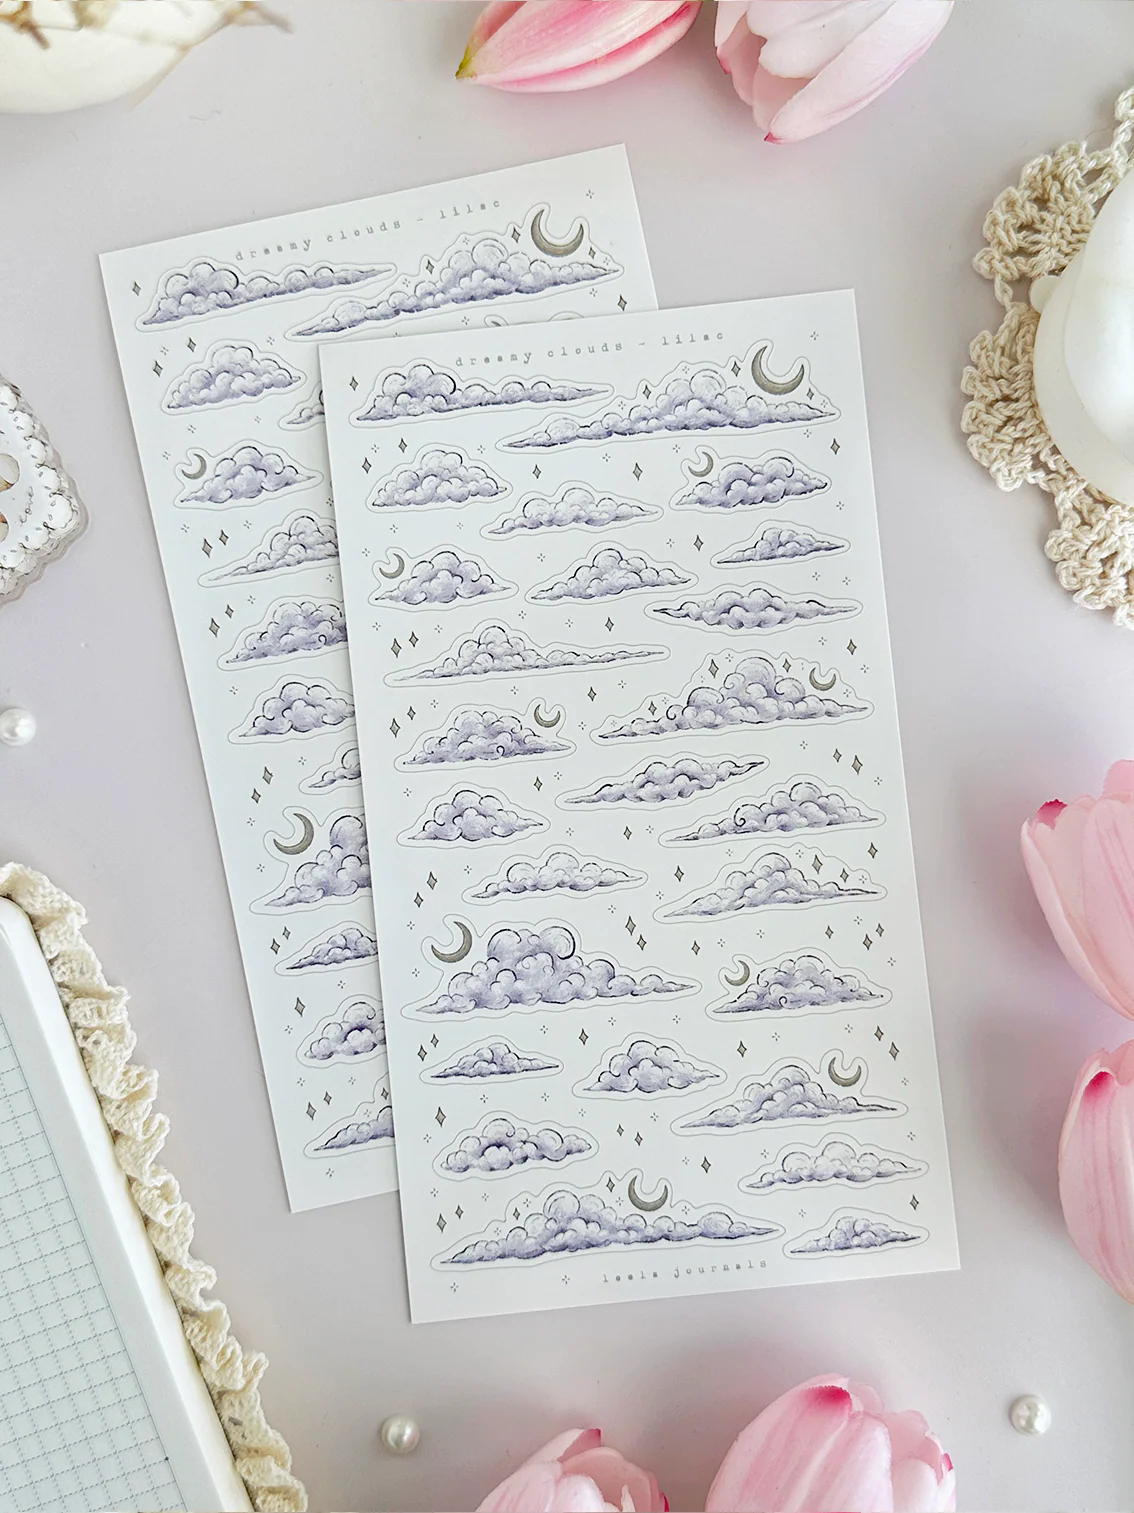 dreamy clouds - lilac
dreamy clouds - lilac
leela journals